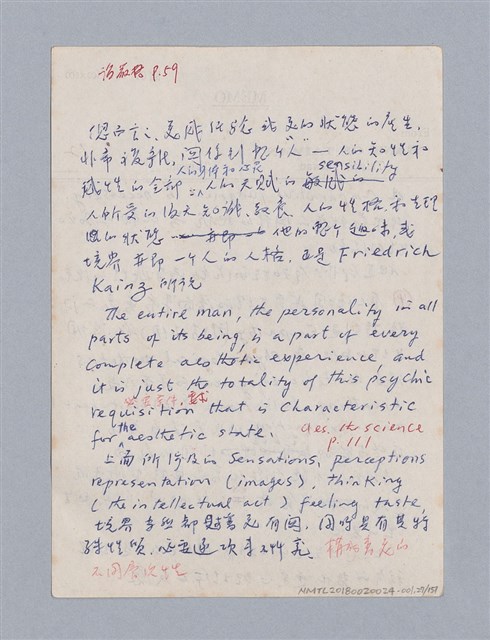 P.59
總而言之、美感經驗或美的狀態的產生,
非常複雜,關係到整個人 — 人的知性和
感性的全部 人的身體和心靈 人的天賦的 敏感的 sensibility
人所受的後天知識、教養、人的性格,和
的狀態 — 亦即 — 他的整个趣味,或
境界 亦即一个人的人格. 正是 Friedrich
Kainz 所說
The entire man, the personality in all
parts of its being, is a part of every
complete aesthetic experience, and
it is just the totality of this psychic
必要条件
requisition that is characteristic
for the aesthetic state. Aes. the science
p. 111
上面所涉及的 Sensations, perceptions
representation (images), thinking
(the intellectual act) feeling taste,
境界 都與 有關, 同時具有其特
殊性質, 必要逐次來
不同
NMTL20180020024-001.27/151